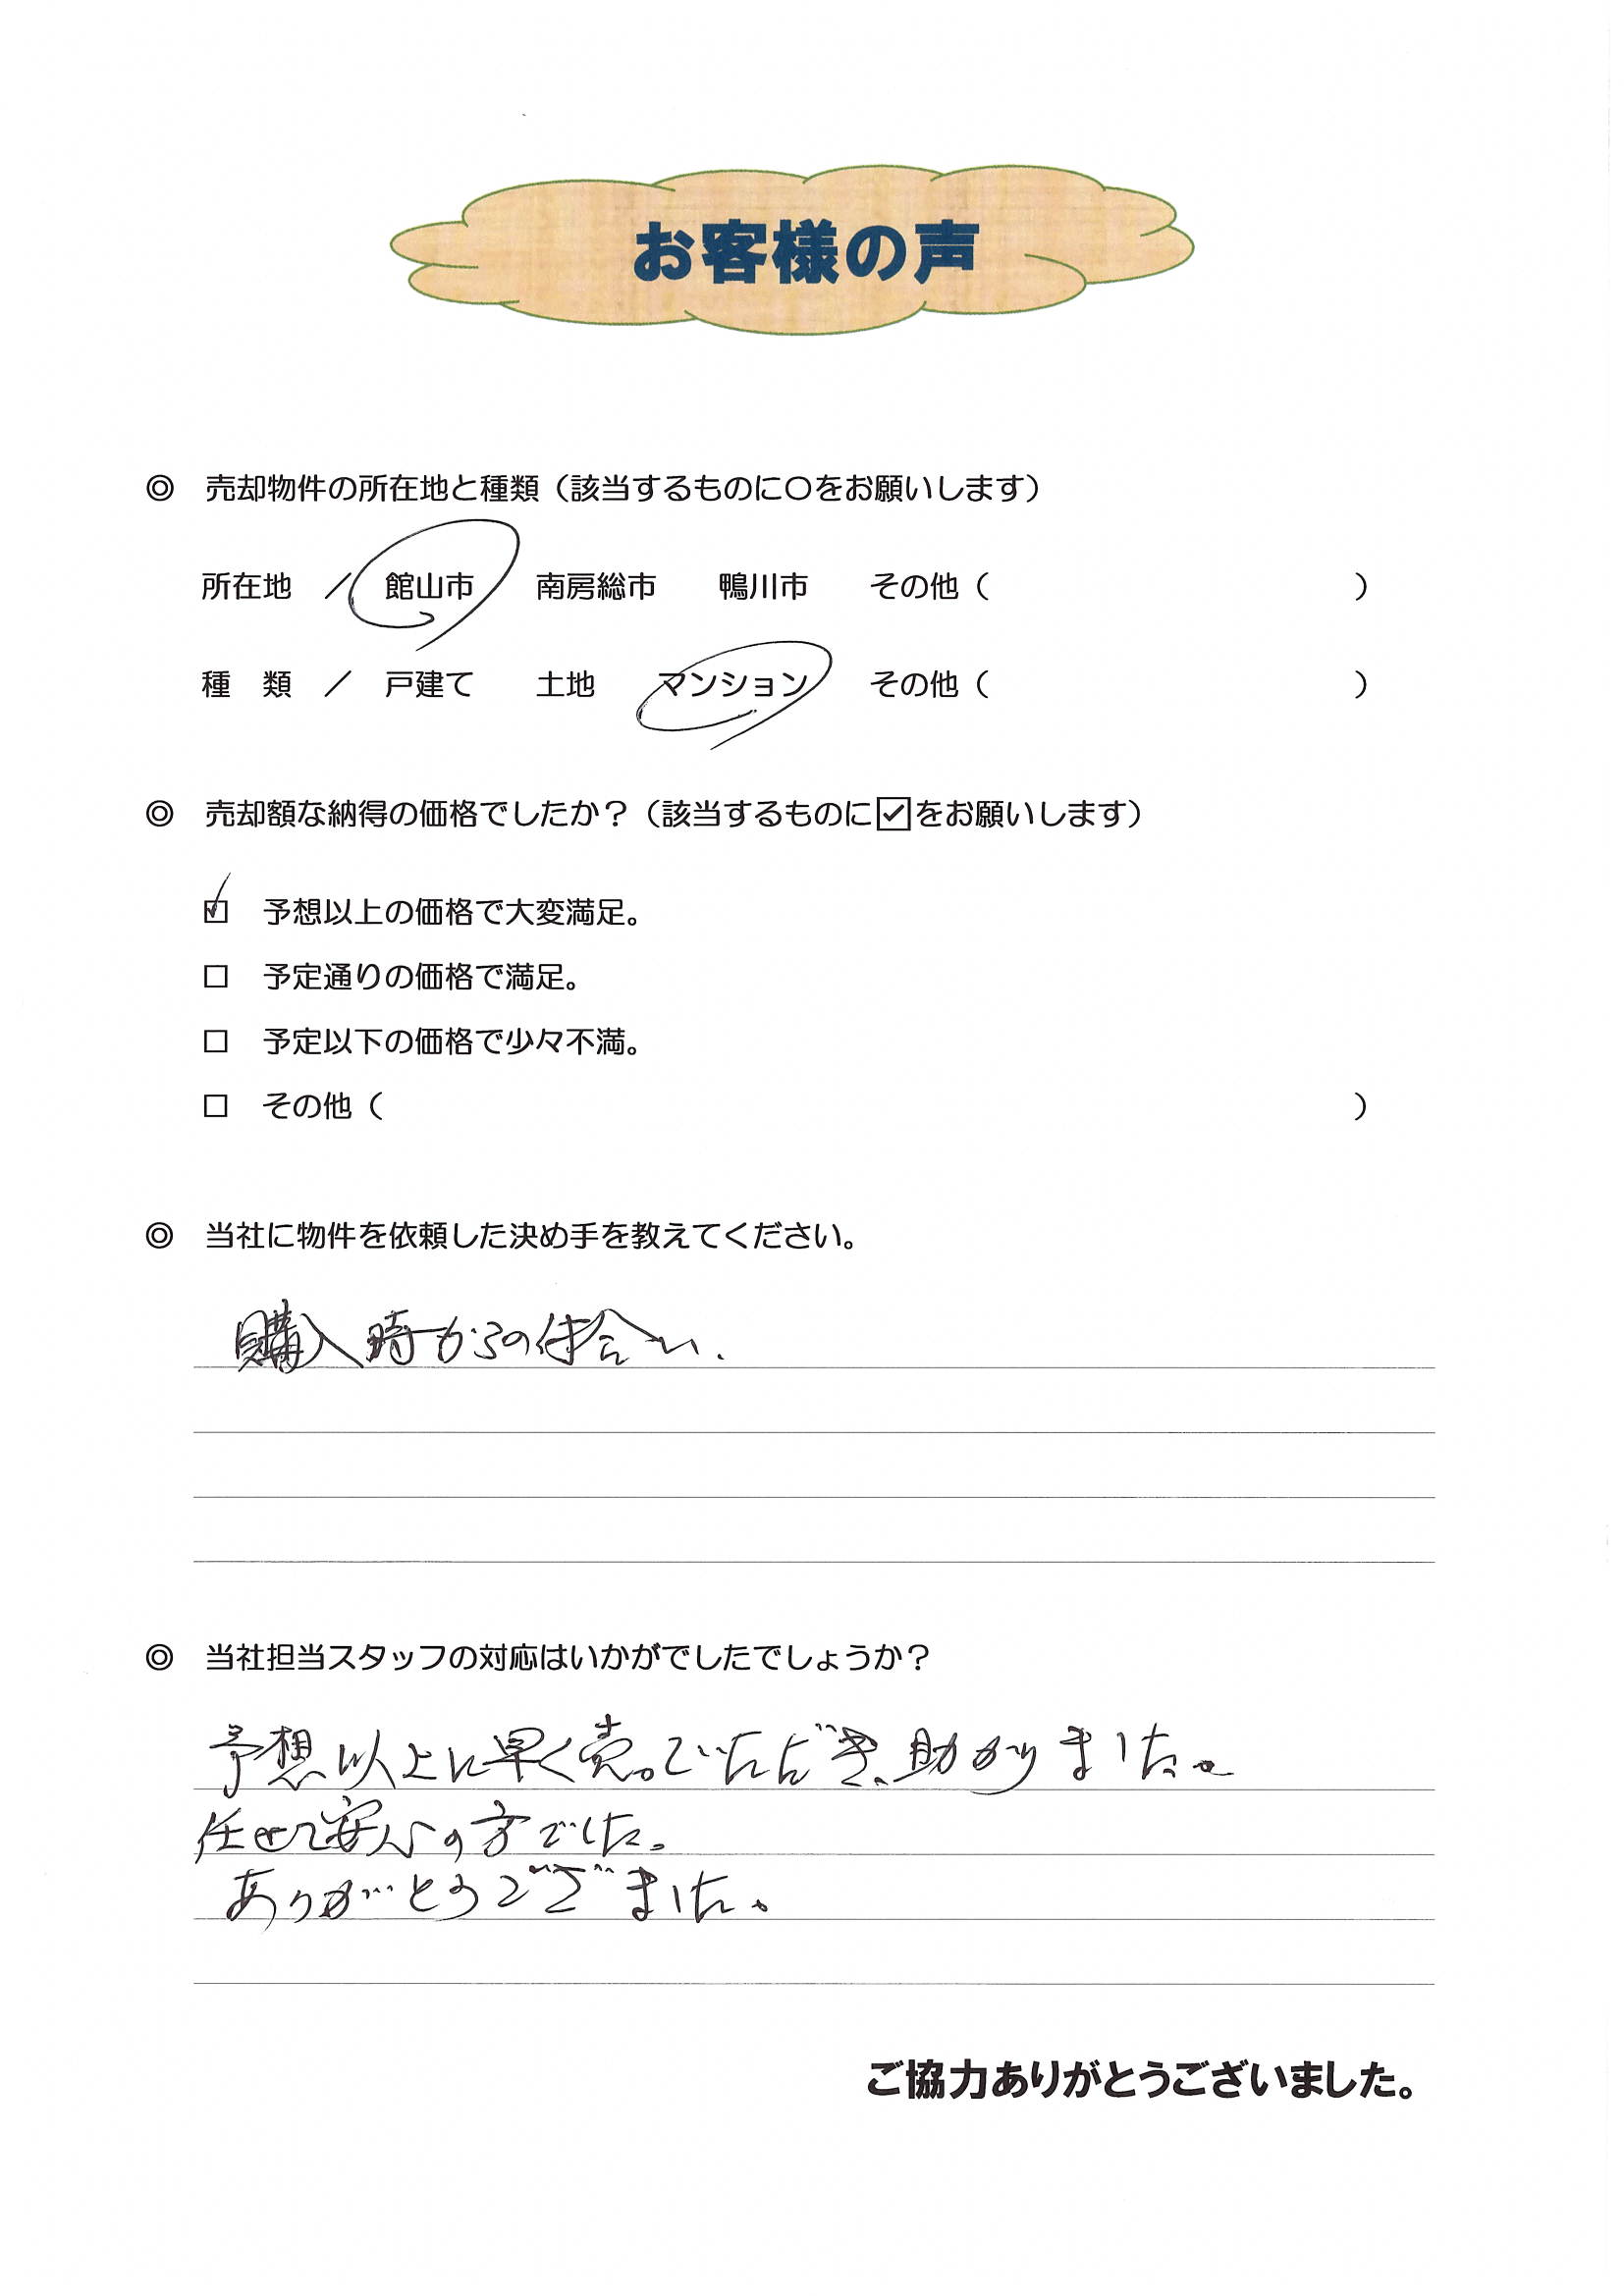 お客様の声
◎ 売却物件の所在地と種類（該当するものに〇をお願いします）
所在地 ／ 館山市 南房総市 鴨川市 その他（ ）
種 類 ／ 戸建て 土地 マンション その他（ ）
◎ 売却額な納得の価格でしたか？（該当するものに☑をお願いします）
☑ 予想以上の価格で大変満足。
□ 予定通りの価格で満足。
□ 予定以下の価格で少々不満。
□ その他（ ）
◎ 当社に物件を依頼した決め手を教えてください。
購入時からの付合い.
◎ 当社担当スタッフの対応はいかがでしたでしょうか？
予想以上に早く売っていただき、助かりました。
任せて安心の方でした。
ありがとうござました。
ご協力ありがとうございました。